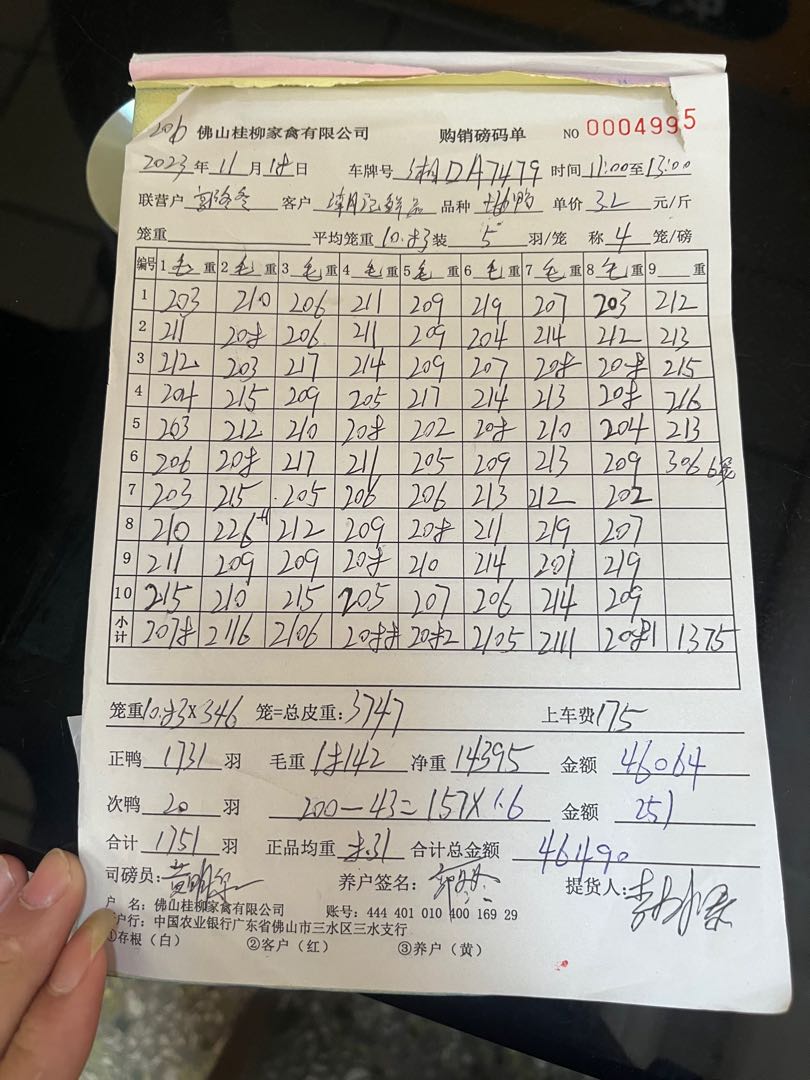 206 佛山桂柳家禽有限公司 购销磅码单 NO 0004995
2023年11月18日 车牌号 湘DA7479 时间 11:00至13:00
联营户 客户 品种 单价 3.2 元/斤
笼重 平均笼重 10.83 装 5 羽/笼 称 4 笼/磅
编号 1 毛 重 2 毛 重 3 毛 重 4 毛 重 5 毛 重 6 毛 重 7 毛 重 8 毛 重 9 重
1 203 210 206 211 209 219 207 203 212
2 211 208 206 211 209 204 214 212 213
3 212 203 217 214 209 207 208 208 215
4 204 215 209 205 217 214 213 208 216
5 203 212 210 208 202 208 210 204 213
6 206 208 217 211 205 209 213 209 306 6笼
7 203 215 205 206 206 213 212 202
8 210 226 212 209 208 211 219 207
9 211 209 209 208 210 214 201 219
10 215 210 215 205 207 206 214 209
小计 2078 2116 2106 2088 2082 2105 2111 2081 1375
笼重10.83X346 笼=总皮重:3747 上车费175
正鸭 1731 羽 毛重 18142 净重 14395 金额 46064
次鸭 20 羽 200-43=157X1.6 金额 251
合计 1751 羽 正品均重 8.31 合计总金额 46490
司磅员: 养户签名: 提货人:
户 名: 佛山桂柳家禽有限公司 账号: 444 401 010 400 169 29
户行: 中国农业银行广东省佛山市三水区三水支行
①存根（白） ②客户（红） ③养户（黄）